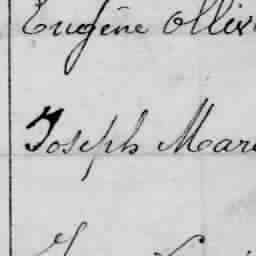 Eugène Olliv
Joseph Mar